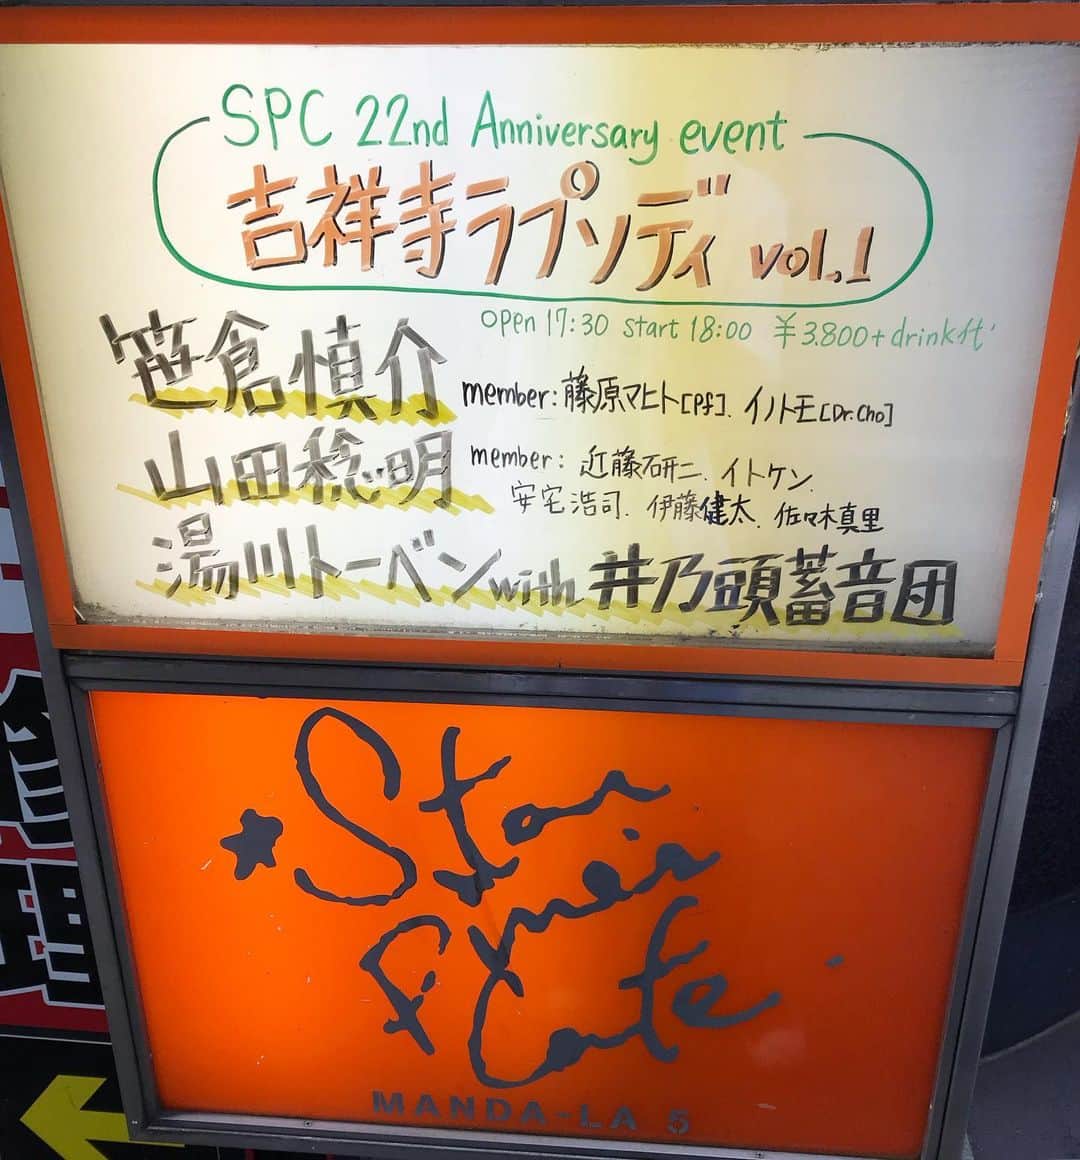 SPC 22nd Anniversary event
吉祥寺ラプソディ vol.1
open 17:30 start 18:00 ¥3.800+drink代
笹倉慎介 member:藤原マヒト[Pf]. イノトモ[Dr.Cho]
山田稔明 member: 近藤研二. イトケン.
安宅浩司. 伊藤健太. 佐々木真里
湯川トーベン with 井乃頭蓄音団
Star
Pine's
Cafe
MANDA-LA 5
理